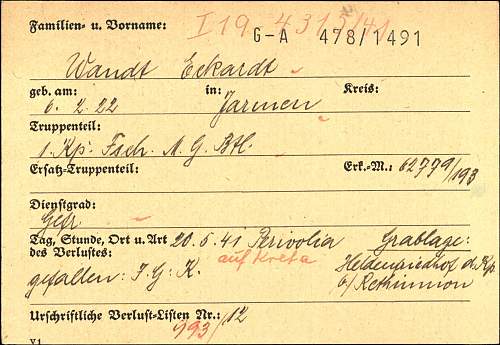 Familien- u. Vorname: I 19 4315/41
G-A 478/1491
Wandt Eckardt
geb. am: in: Kreis:
6. 2. 22 Jarmen
Truppenteil:
1. Kp. Fsch. M. G. Btl.
Ersatz-Truppenteil: Erk.-M.: 62779/193
Dienstgrad:
Gefr
Tag, Stunde, Ort u. Art 20.5.41 Perivolia Grablage:
des Verlustes: auf Kreta Heldenfriedhof d. Kp
gefallen: I. G. K. b/ Rethimnon
Urschriftliche Verlust-Listen Nr.: 193/12
V1